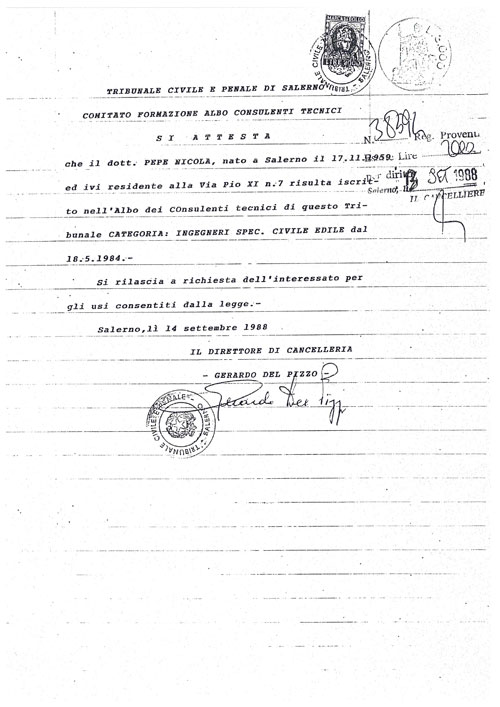 MARCA DA BOLLO
TRIBUNALE CIVILE E PENALE DI SALERNO
COMITATO FORMAZIONE ALBO CONSULENTI TECNICI
SI ATTESTA
N. Reg. Proventi
che il dott. PEPE NICOLA, nato a Salerno il 17.11.1959
Lire
ed ivi residente alla Via Pio XI n.7 risulta iscrit-
per diritti
SET 1988
Salerno, lì
IL CANCELLIERE
to nell'Albo dei COnsulenti tecnici di questo Tri-
bunale CATEGORIA: INGEGNERI SPEC. CIVILE EDILE dal
18.5.1984.-
Si rilascia a richiesta dell'interessato per
gli usi consentiti dalla legge.-
Salerno,lì 14 settembre 1988
IL DIRETTORE DI CANCELLERIA
- GERARDO DEL PIZZO -
Gerardo Del Pizzo
TRIBUNALE CIVILE SALERNO